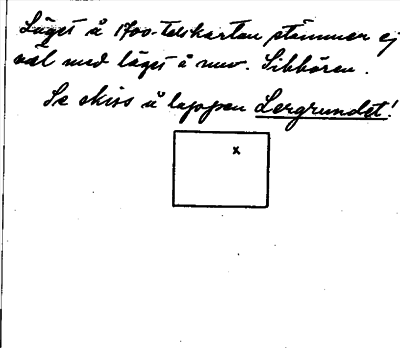 Läget å 1700-talskartan stämmer ej
väl med läget å nuv. Sibbören.
Se skiss å lappen Lergrundet!
x